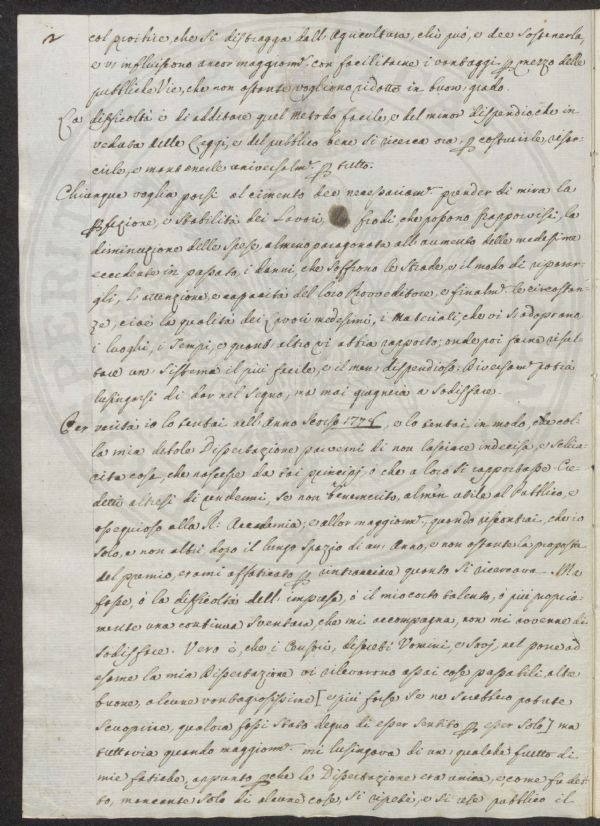 2
col proibire, che si distragga dall'Agricoltura, chi può, e dee sostenerla,
e vi influissono ancor maggiorm.e con facilitarne i vantaggi p mezzo delle
pubbliche Vie, che non ostante vogliono ridotte in buon grado.
La difficoltà è di additare quel metodo facile, e del minor dispendio che in
veduta delle Leggi, e del pubblico bene si ricerca ora p costruirle, risar-
cirle, e mantenerle universalm.e p tutto.
Chiunque voglia porsi al cimento dee necessariam.e prender di mira la
pfezione, e stabilità dei Lavori, le frodi che possono frapporvisi, la
diminuzione delle spese, almeno paragonata all'aumento delle medesime
eccedute in passato, i danni, che soffrono le Strade, e il modo di riparar-
gli, l'attenzione, e capacità del loro Provveditore, e finalm.e le circostan-
ze, cioè la qualità dei Lavori medesimi, i materiali, che vi si adoprano
i luoghi, i Tempi, e quant'altro vi abbia rapporto; onde poi farne risul-
tare un Sistema il più facile, e il men dispendioso. Diversam.e potrà
lusingarsi di dar nel segno, ma mai giugnerà a sodisfare.
Per verità io lo tentai nell'Anno scorso 1778, e lo tentai in modo, che col-
la mia debole Dissertazione parvemi di non lasciare indecisa, e
cosa, che nascesse da tai principj, o che a loro si rapportasse. Cre-
detti altresì di rendermi, se non benemerito, almen utile al Pubblico, e
ossequioso alla R. Accademia; e allor maggiorm.e, quando riscontrai, che io
solo, e non altri dopo il lungo spazio di un Anno, e non ostante la proposta
del premio, erami affaticato p rintracciare quanto si ricercava. Ma
fosse, o la difficoltà dell'impresa, o il mio corto talento, o più
mente una continua sventura, che mi accompagna, non mi avvenne di
sodisfare. Vero è, che i Censori, discreti Uomini, e Savj, nel porre ad
esame la mia Dissertazione vi rilevarono assai cose passabili, altre
buone, alcune vantagiosissime [e più forse se ne sarebbero potute
scuoprire, qualora fossi stato degno di esser sentito p esser solo] ma
tuttavia quando maggiorm.e mi lusingava di un qualche frutto di
mie fatiche, appunto pchè la Dissertazione era unica, e come fu det-
to, mancante solo di alcune cose, si ripetè, e si rese pubblico il